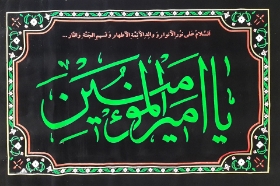 السلام على نور الأنوار و والد الأئمة الأطهار و قسيم الجنة و النار ...
يا أمير المؤمنين